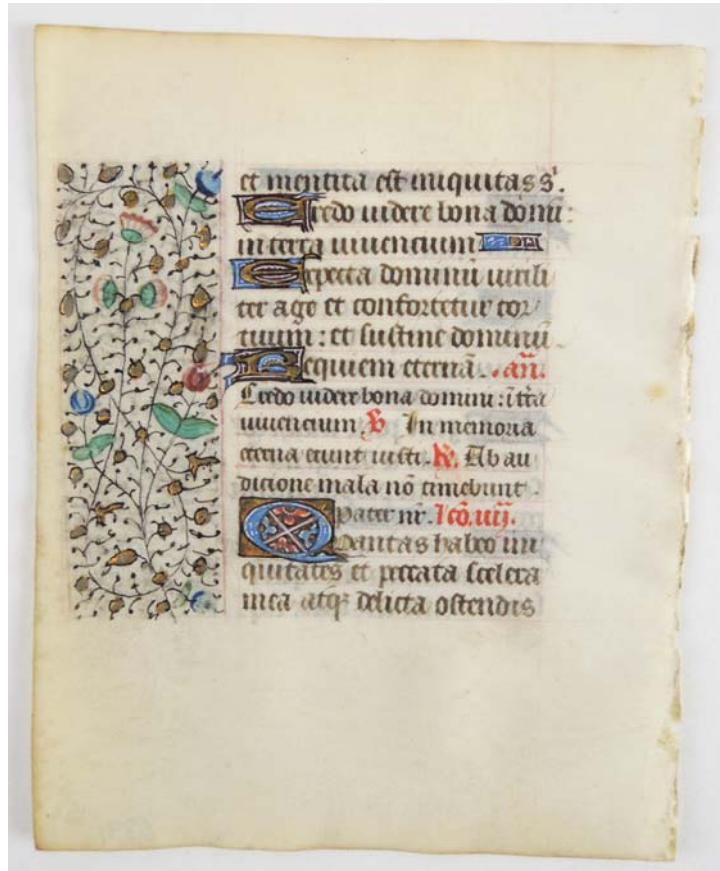 et mentita est iniquitas s'.
Credo uidere bona domi:
in terra uiuencium
Expecta dominū uirili
ter age et confortetur cor
tuum: et sustine dominū.
Requiem eternā. .añ.
Credo uidere bona domini: ī t̄ra
uiuencium. In memoria
eterna erunt iusti. Ab au
dicione mala nō timebunt.
Pater nr̄. lcō. iiij.
Quantas habeo ini
quitates et peccata scelera
mea atq delicta ostendis